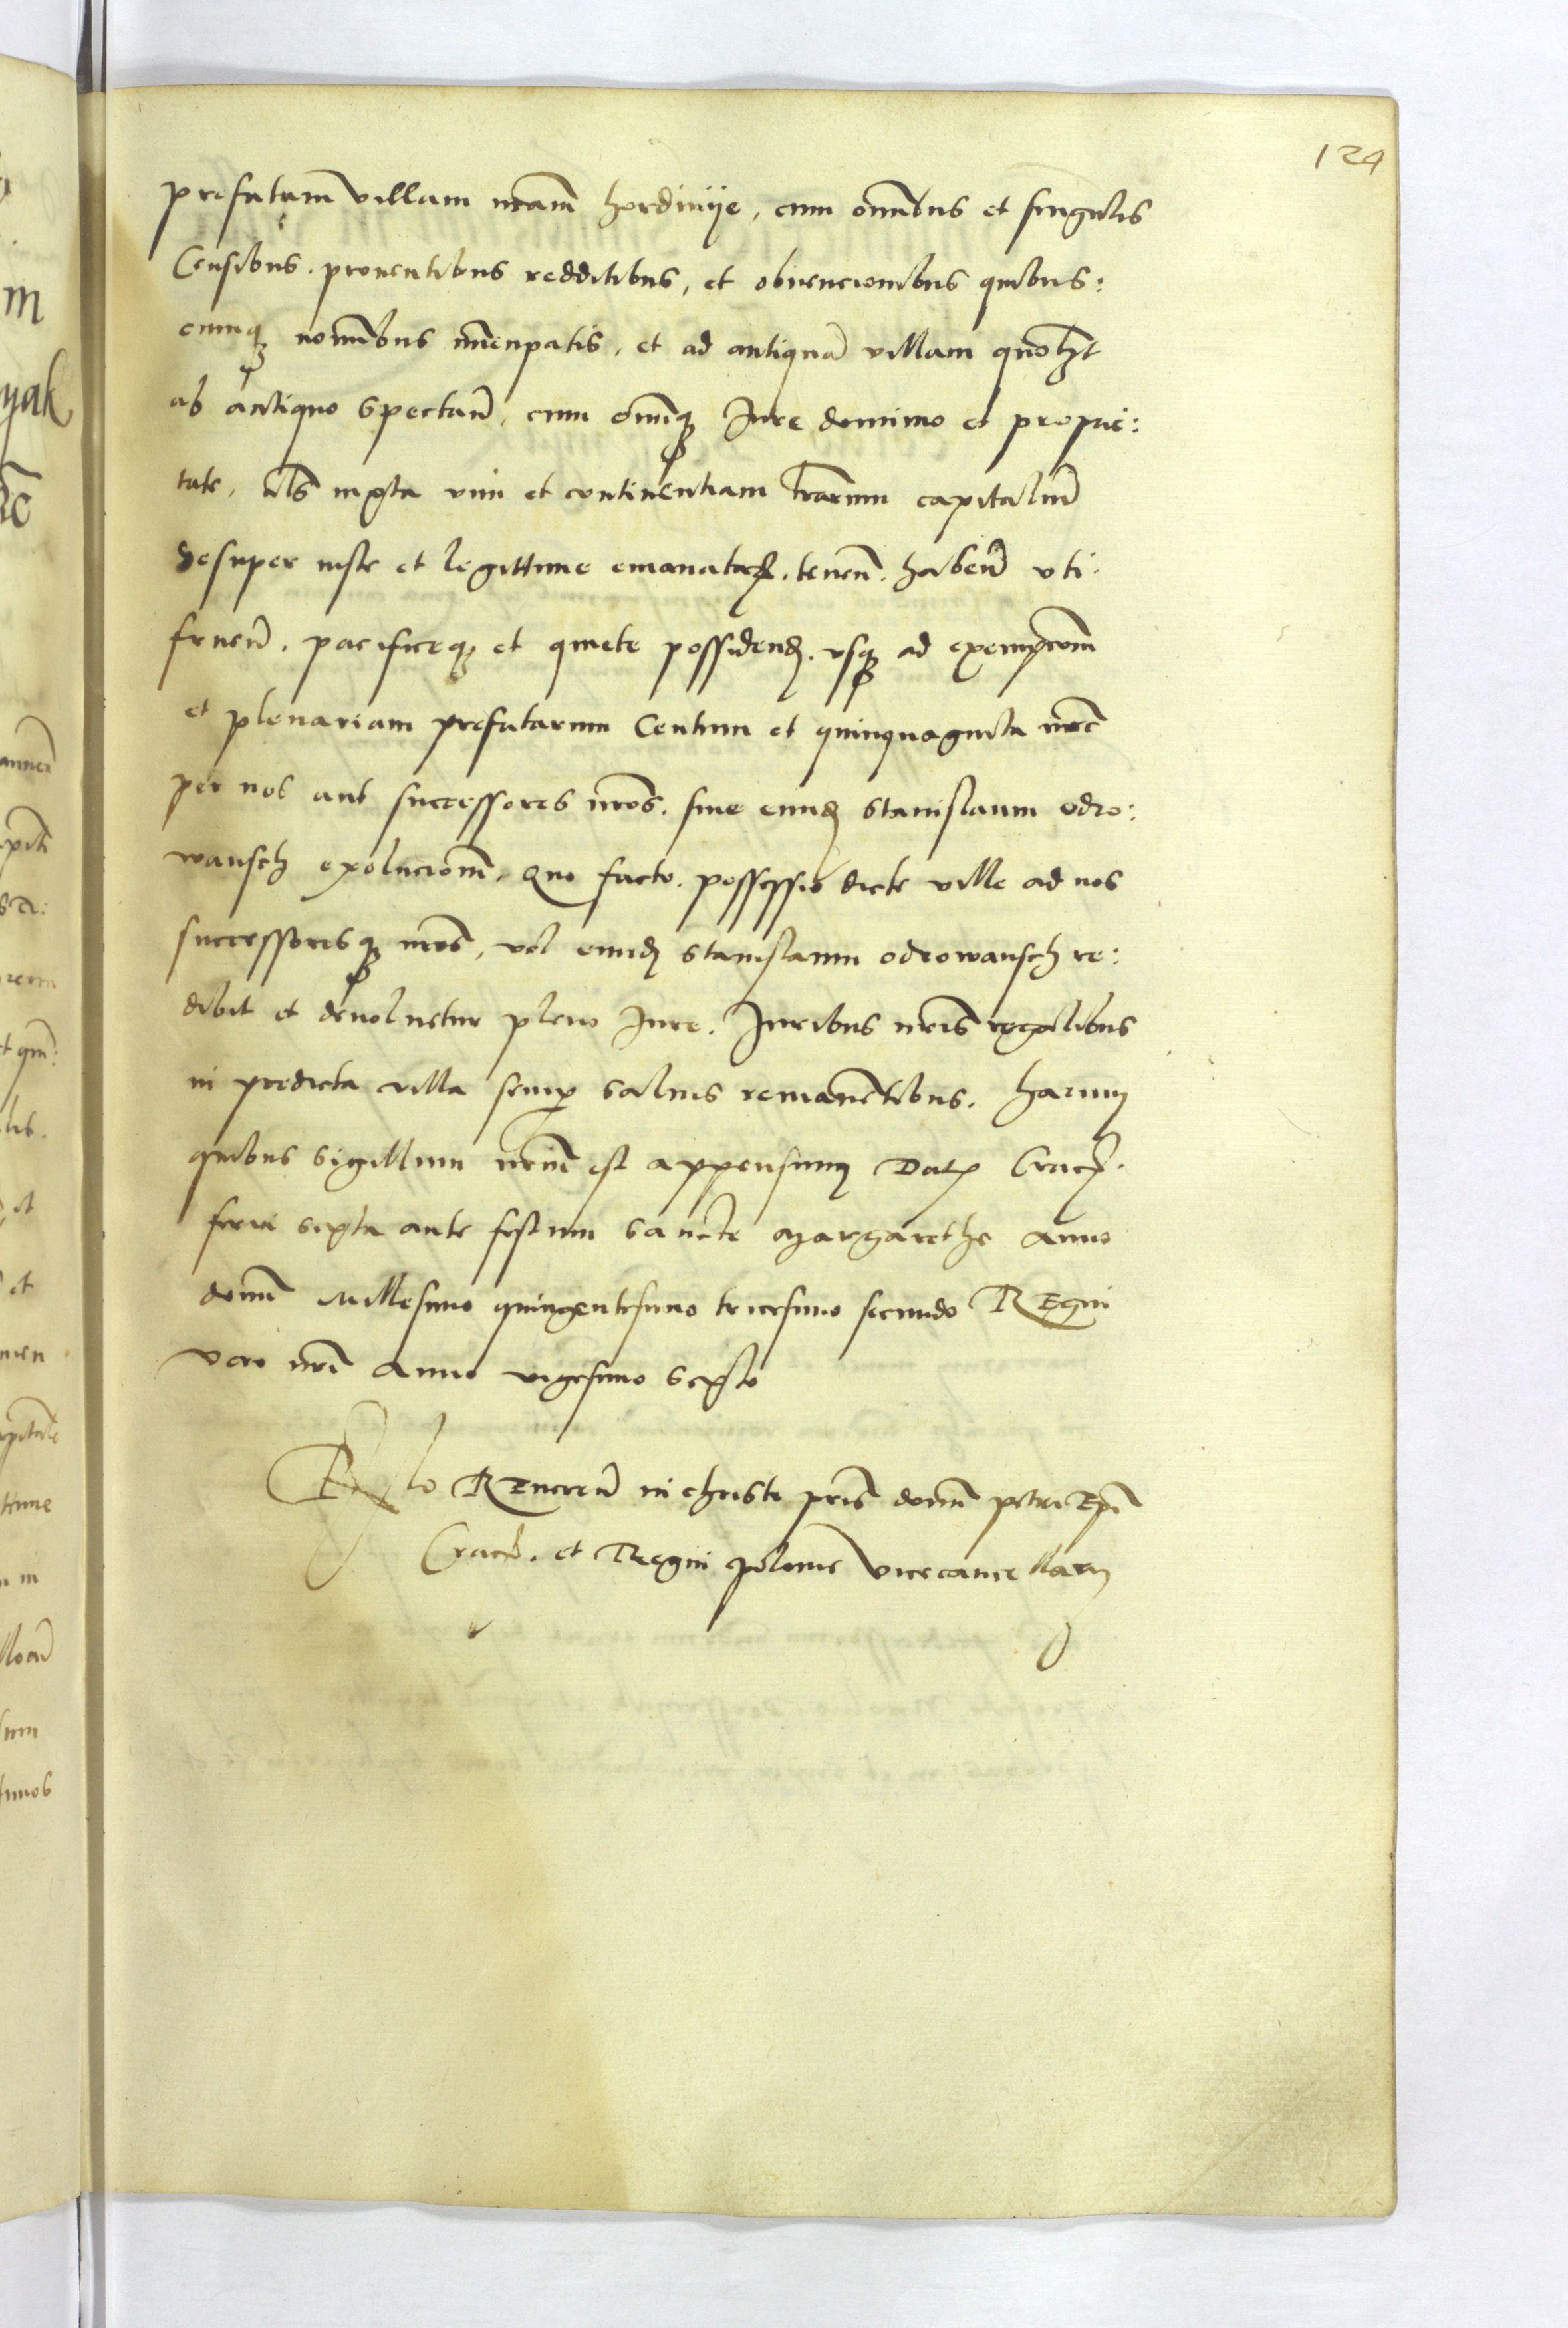 124
prefatam villam nram̄ hordinije, cum omībus et singulis
Censibus. proventibus redditibus, et obvencionibus quibus:
cumq nomībus nūcupatis, et ad antiquā villam quōlzt
ab antiquo spectan̄, cum omīq Jure dominio et proprie:
tate, als iuxta vim et continentiam lrarum capitaliū
desuper iuste et legittime emanatar. tenen̄. haben̄ uti.
fruen̄. pacificeq et quiete possidend. usq ad exempcionē
et plenariam prefatarum Centum et quinquaginta mrc̄
per nos aut successores nros. sive eund Stanislaum odro:
wansch exolucionē. Quo facto. possessio dicte ville ad nos
successoresq nros, vel eund Stanislaum odrowansch re:
dibit et devolvetur pleno Jure. Juribus nris regalibus
in predicta villa semp salvis remanētibus. harum
quibus sigillum nrm̄ est appensum Dat Crac.
feria sexta ante festum sancte Margarethe Anno
domī Millesimo quingentesimo tricesimo secundo Regni
vero nri Anno vigesimo sexto
Rlo Reveren̄ in christo pris domī petri Epī
Crac. et Regni polonie Vicecancellarij